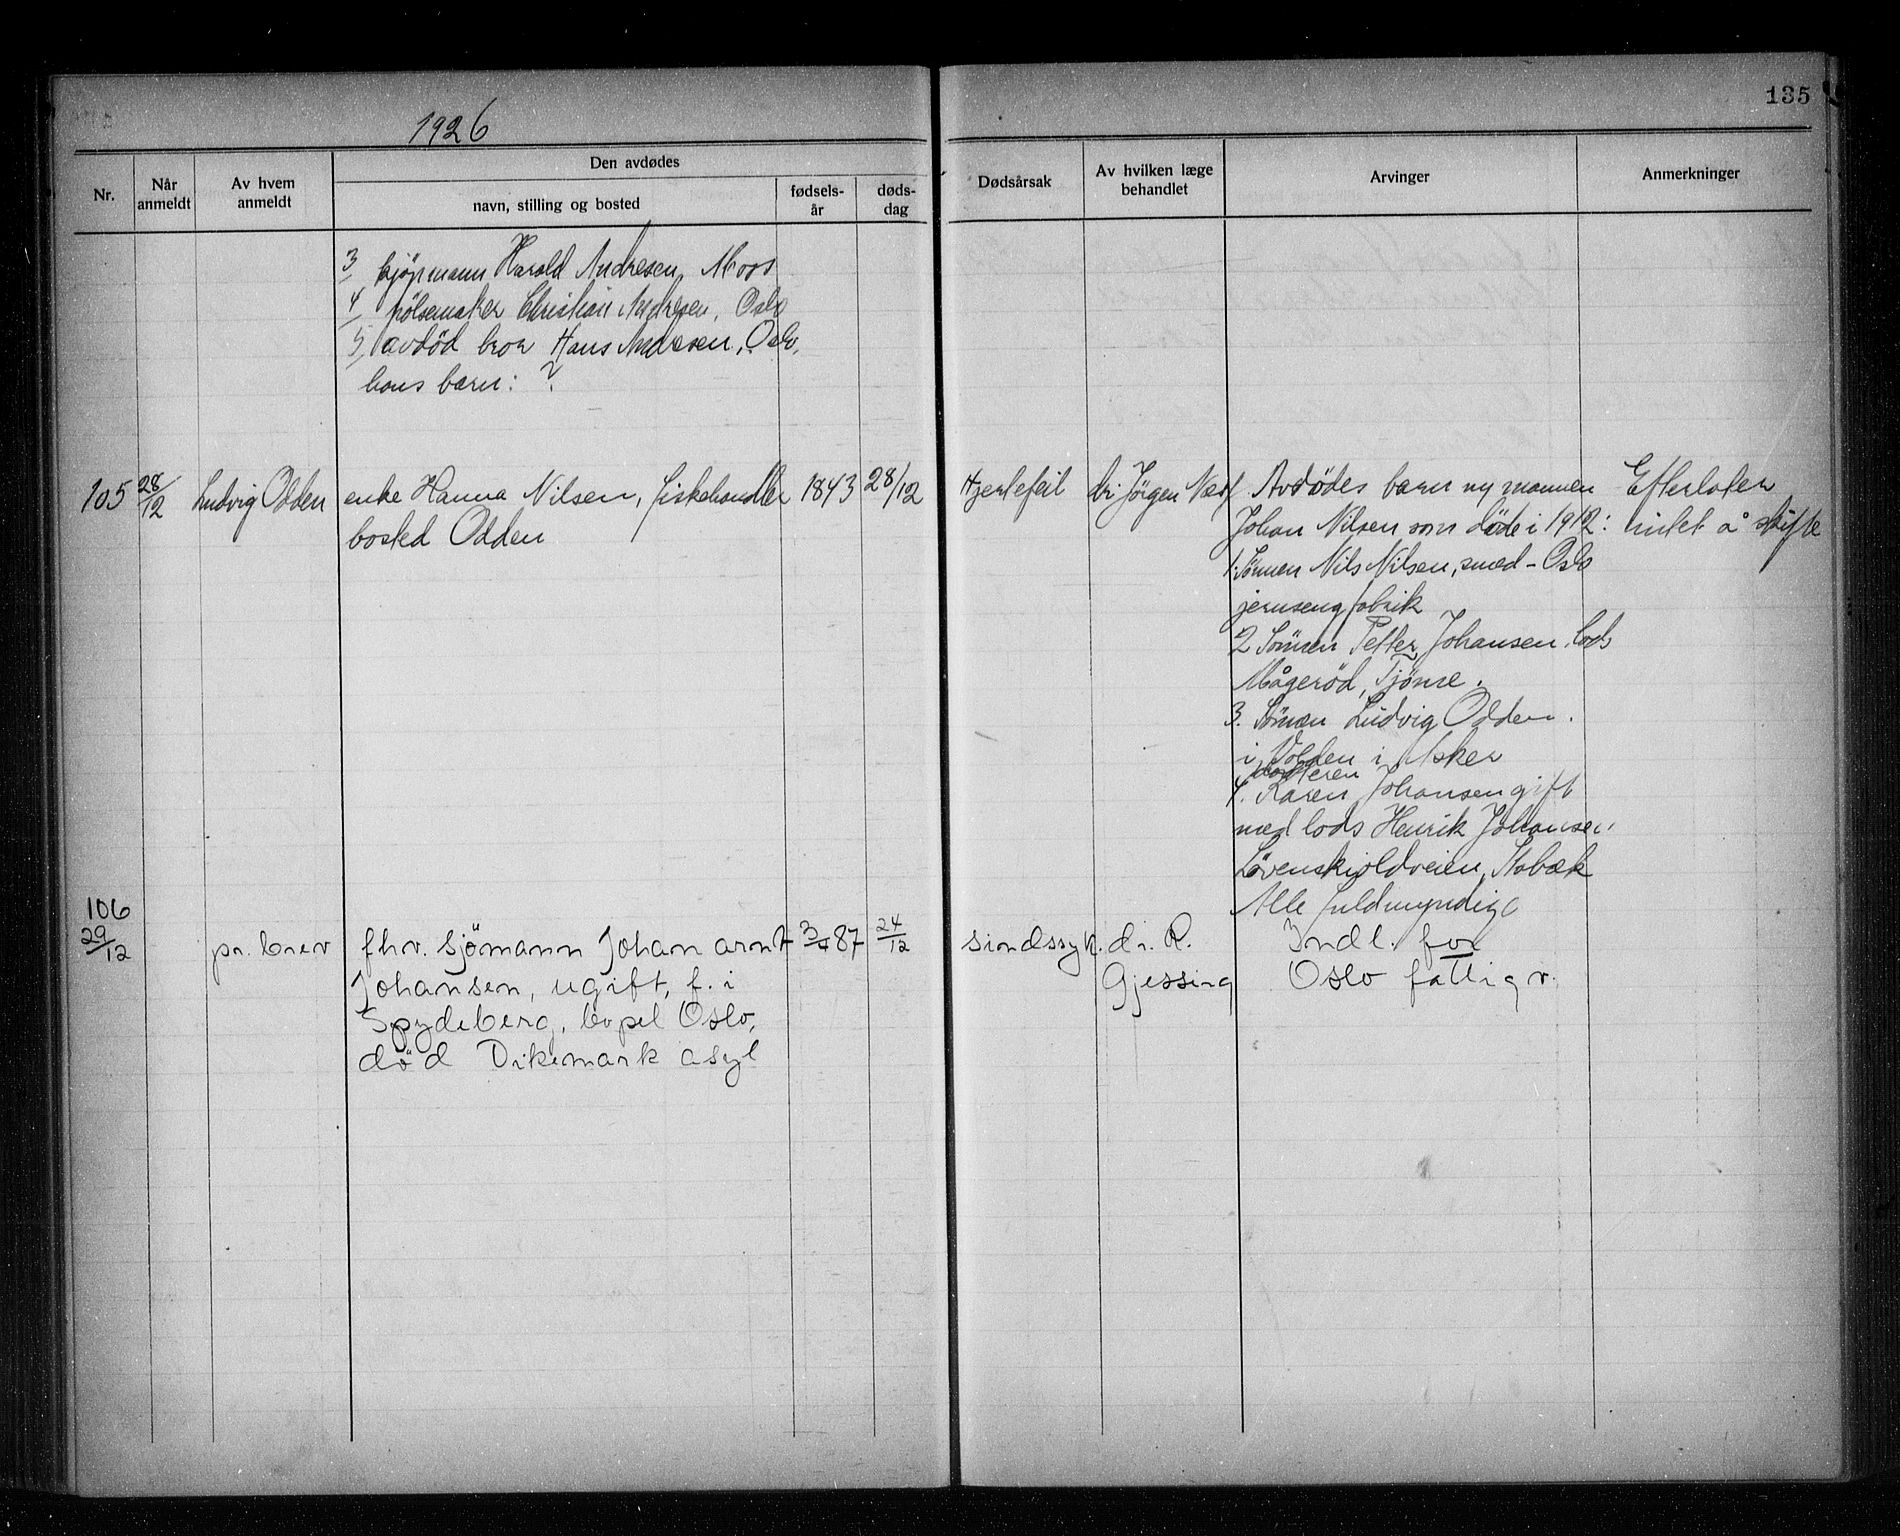 1926
135
Nr.
Når anmeldt
Av hvem anmeldt
Den avdødes
navn, stilling og bosted
fødsels-år
døds-dag
Dødsårsak
Av hvilken læge behandlet
Arvinger
Anmerkninger
3, kjøpmann Harald Andresen, Moss
4, pølsemaker Christian Andresen, Oslo
5, avdød bror Hans Andresen, Oslo,
hans barn: ?
105 28/12 Ludvig Odden enke Hanna Nilsen, fiskehandler 1843 28/12 Hjertefeil dr. Jörgen Næss
bosted Odden
Avdödes barn m/ mannen
Johan Nilsen som döde i 1912:
1. Sönnen Nils Nilsen, smed - Oslo
jernsengfabrik
2 Sönnen Petter Johansen, lods
Mågeröd, Tjöme.
3. Sönnen Ludvig Odden.
i Volden i Asker
datteren
4. Karen Johansen gift
med lods Henrik Johansen,
Lövenskioldveien, Stabæk
Alle fuldmyndige
Efterlater
intet å skifte
106
29/12 pr. brev fhv. sjömann Johan Arnt 3/4 87 24/12 sindssyk. dr. R.
Johansen, ugift, f. i Gjessing
Spydeberg, bopel Oslo,
död Dikemark asyl
Indl. for
Oslo fattigv.